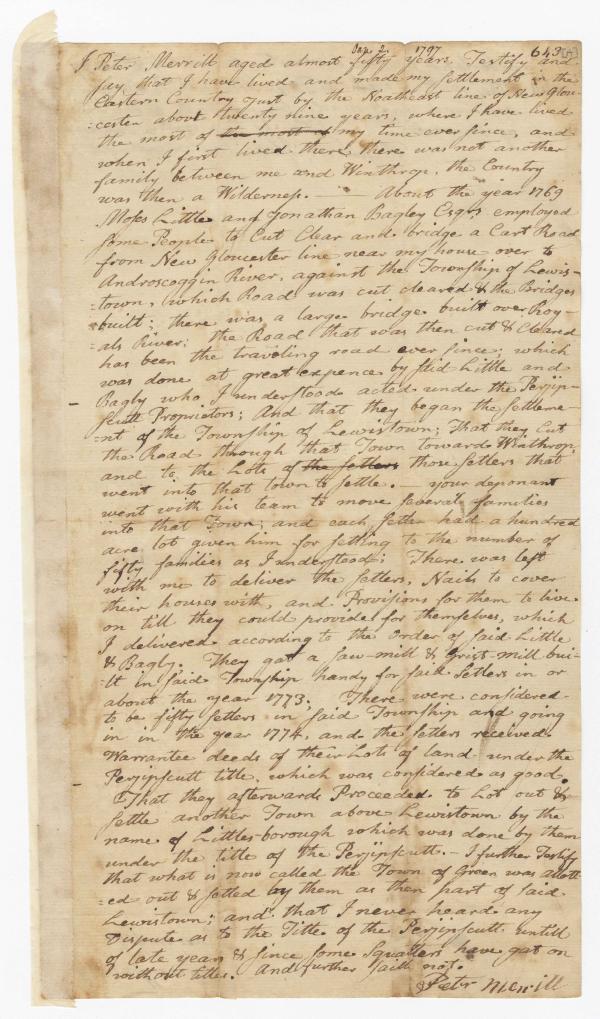 Sep. 2. 1797 643
I Peter Merrill aged almost fifty years Testify and
say that I have lived and made my settlement in the
Eastern Country Just by the Northeast line of New Glou-
-cester about twenty nine years, where I have lived
the most of the most of my time ever since, and
when I first lived there, there was not another
family between me and Winthrop, the Country
was then a Wilderness. — About the year 1769
Moses Little and Jonathan Bagley Esqrs employed
some People to Cut Clear and bridge a Cart Road
from New Gloucester line near my house over to
Androscoggin River, against the Township of Lewis-
-town, which Road was cut cleared & the Bridges
built; there was a large bridge built over Roy-
-als River; the Road that was then cut & cleared
has been the traveling road ever since, which
was done at great expence by said Little and
Bagly who I understood acted under the Perjip-
scutt Proprietors; And that they began the settleme-
-nt of the Township of Lewistown; That they Cut
the Road through that Town toward Winthrop,
and to the Lots of the setlers those setlers that
went into that town to settle. your deponant
went with his team to move several families
into that Town; and each setler had a hundred
acre lot given him for setling to the number of
fifty families as I understood; There was left
with me to deliver the setlers, Nails to cover
their houses with, and Provisions for them to live
on till they could provide for themselves, which
I delivered according to the order of said Little
& Bagly. They got a saw-mill & Grist-mill bui-
-lt in said Township handy for said Setlers in or
about the year 1773. There were considered
to be fifty setlers in said Township and going
in in the year 1774, and the setlers received
Warrantee deeds of their Lots of land under the
Perjipscutt title, which was considered as good.
That they afterwards Proceeded to Lot out &
settle another Town above Lewistown by the
name of Littles-borough which was done by them
under the title of the Perjipscutt. - I further Testify
that what is now called the Town of Green was allott
-ed out & setled by them as then part of said
Lewistown; and that I never heard any
Dispute as to the Title of the Perjipscutt untill
of late years & since some Squatters have got on
without titles. And further saith not.
Peter Merrill